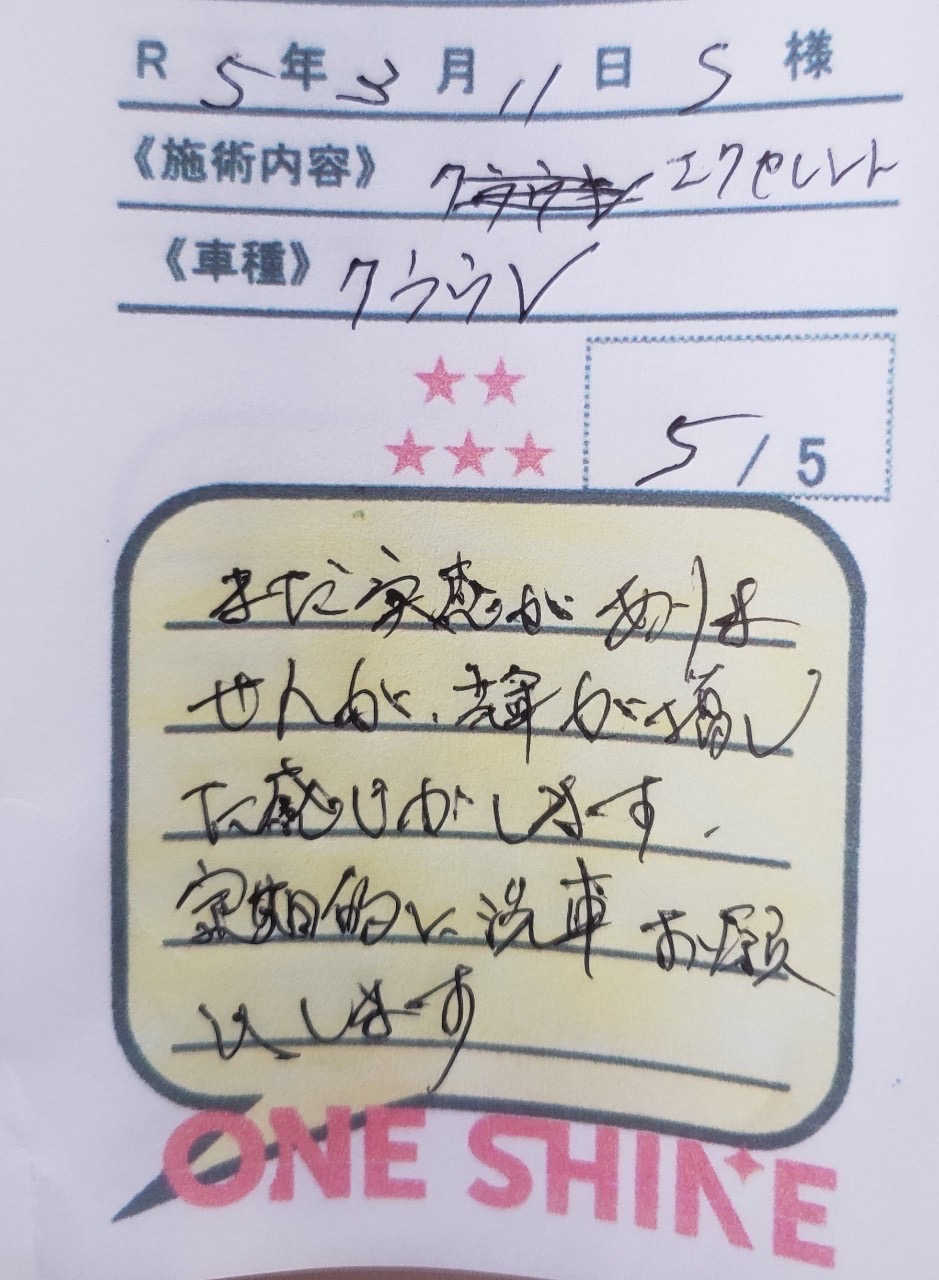 R 5年3月11日 S 様
《施術内容》 エクセレント
《車種》 クラウン
5/5
まだ実感がありま
せんが、輝が増し
た感じがします.
定期的に洗車お願
いします
ONE SHINE